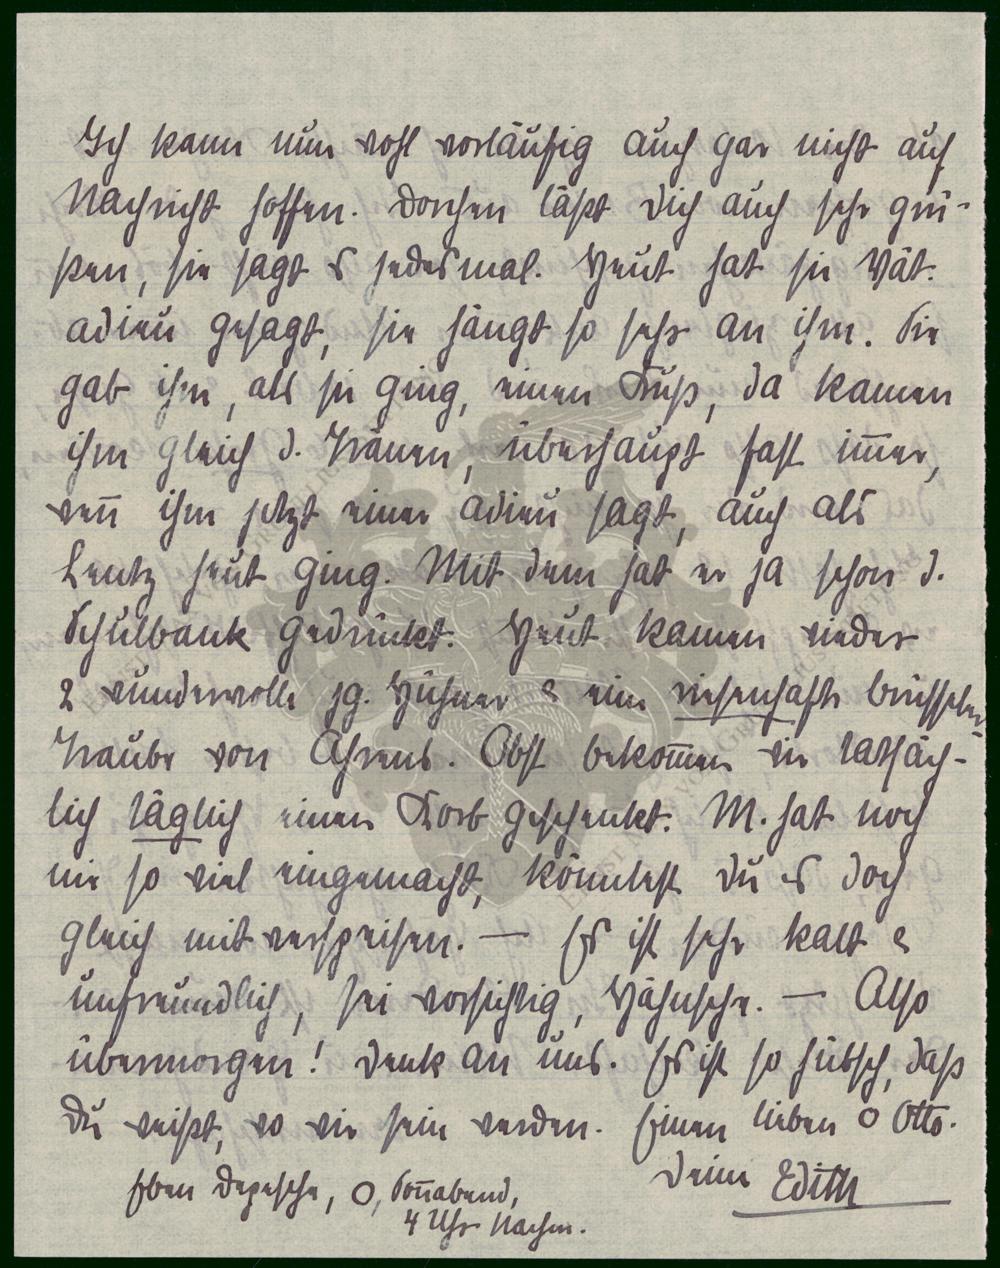 Ich kann nun wohl vorläufig auch gar nicht auf
Nachricht hoffen. Dorchen läßt Dich auch sehr grü-
ßen, sie sagt es jedesmal. Heut hat sie Vät.
adieu gesagt, sie hängt so sehr an ihm. Sie
gab ihm, als sie ging, einen Kuß, da kamen
ihm gleich d. Tränen, überhaupt fast im̄er,
wen̄ ihm jetzt einer adieu sagt, auch als
Lentz heut ging. Mit dem hat er ja schon d.
Schulbank gedrückt. Heut kamen wieder
2 wundervolle jg. Hühner & eine riesenhafte
Traube von Ahrens. Obst bekom̄en wir tatsäch-
lich täglich einen Korb geschenkt. M. hat noch
nie so viel eingemacht, könntest Du es doch
gleich mit verspeisen. — Es ist sehr kalt &
unfreundlich, sei vorsichtig, . — Also
übermorgen! Denk an uns. Es ist so hübsch, daß
Du weißt, wo wir sein werden. Einen lieben O Otto.
Deine Edith
Eben Depesche, O, Son̄abend,
4 Uhr Nachm.